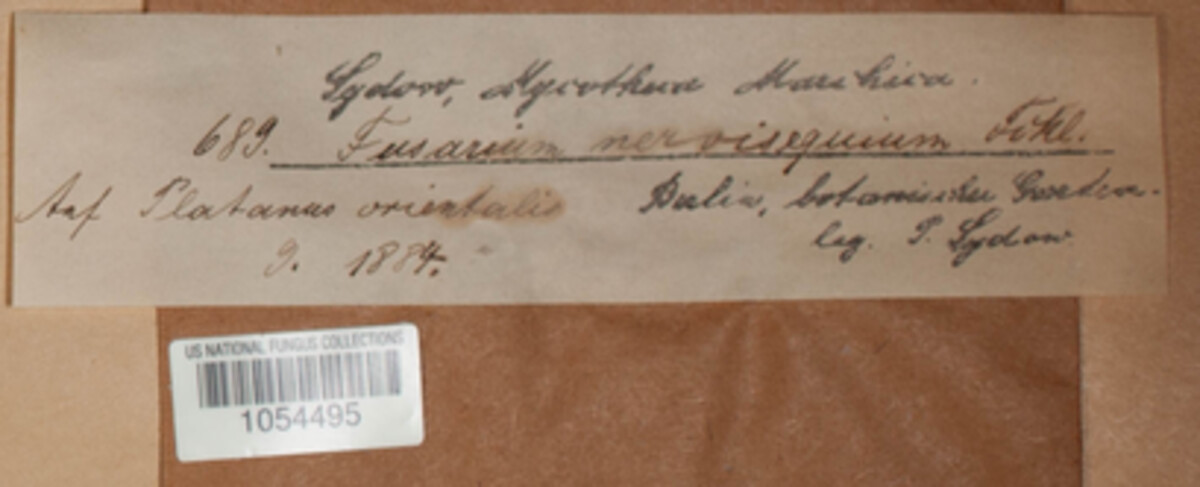 Sydow, Mycotheca Marchica.
689. Fusarium nervisequium Fckl.
Auf Platanus orientalis
Berlin, botanischer Garten.
9. 1884.
leg. P. Sydow
US NATIONAL FUNGUS COLLECTIONS
1054495